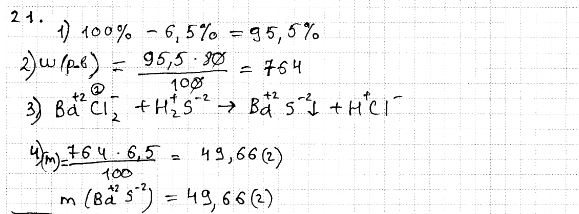 21.
1) 100% - 6,5% = 95,5%
2) ω(р-в) = 95,5 · 80 / 100 = 764
3) Ba⁺²Cl₂⁻ + H₂⁺S⁻² → Ba⁺²S⁻²↓ + H⁺Cl⁻
4) (m) = 764 · 6,5 / 100 = 49,66 (г)
m (Ba⁺²S⁻²) = 49,66 (г)